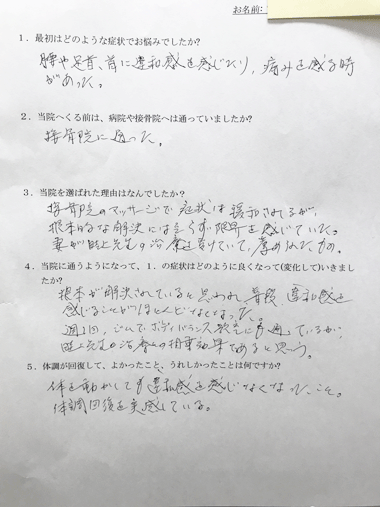 お名前:
1．最初はどのような症状でお悩みでしたか?
腰や足首、首に違和感を感じたり、痛みを感る時
があった。
2．当院へくる前は、病院や接骨院へは通っていましたか?
接骨院に通った。
3．当院を選ばれた理由はなんでしたか?
接骨院のマッサージで症状は緩和されるが、
根本的な解決には至らず限界を感じていた。
妻が畦上先生の治療を受けていて、薦められたため。
4．当院に通うようになって、1．の症状はどのように良くなって(変化して)いきまし
たか?
根本が解決されていると思われ、普段、違和感を
感じることがほとんどなくなった。
週1回、ジムでボディバランス教室にも通っているが、
畦上先生の治療との相乗効果であると思う。
5．体調が回復して、よかったこと、うれしかったことは何ですか?
体を動かしても違和感を感じなくなったこと。
体調回復を実感している。